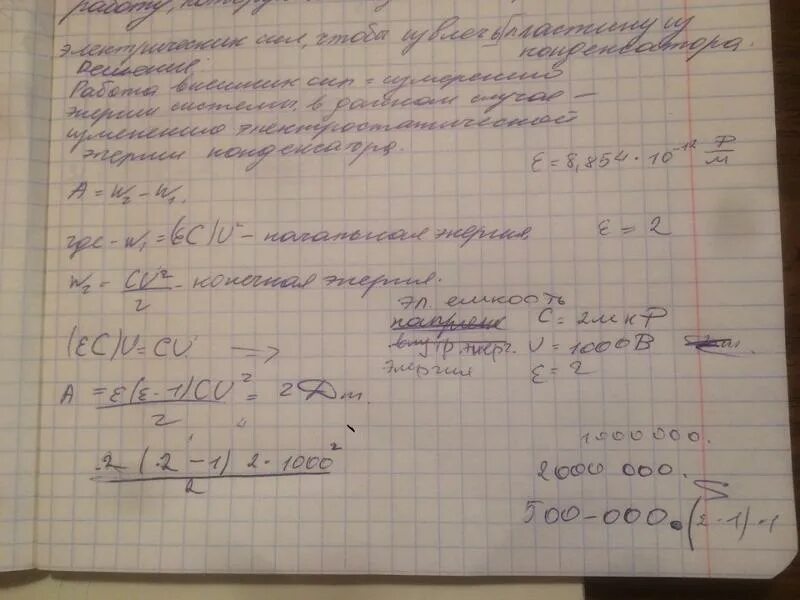 работу, котору
электрических сил, чтобы извлечь пластину из
конденсатора.
Решение
Работа внешних сил = измерению
энергии системы, в данном случае –
изменению электростатической
энергии конденсатра.
ε = 8,854 · 10⁻¹² Ф/м
A = W₂ – W₁
где – W₁ = (εC)U² – начальная энергия
ε = 2
W₂ = CU²/2 – конечная энергия.
эл. емкость
C = 2мкФ
(εC)U = CU →
внутр. энерг. U = 1000В
энергия ε = 2
A = ε(ε-1)CU²/2 = 2 Дж.
2 (2 – 1) 2 · 1000²
2
1000 000.
2000 000.
500–000. (2-1) · 1